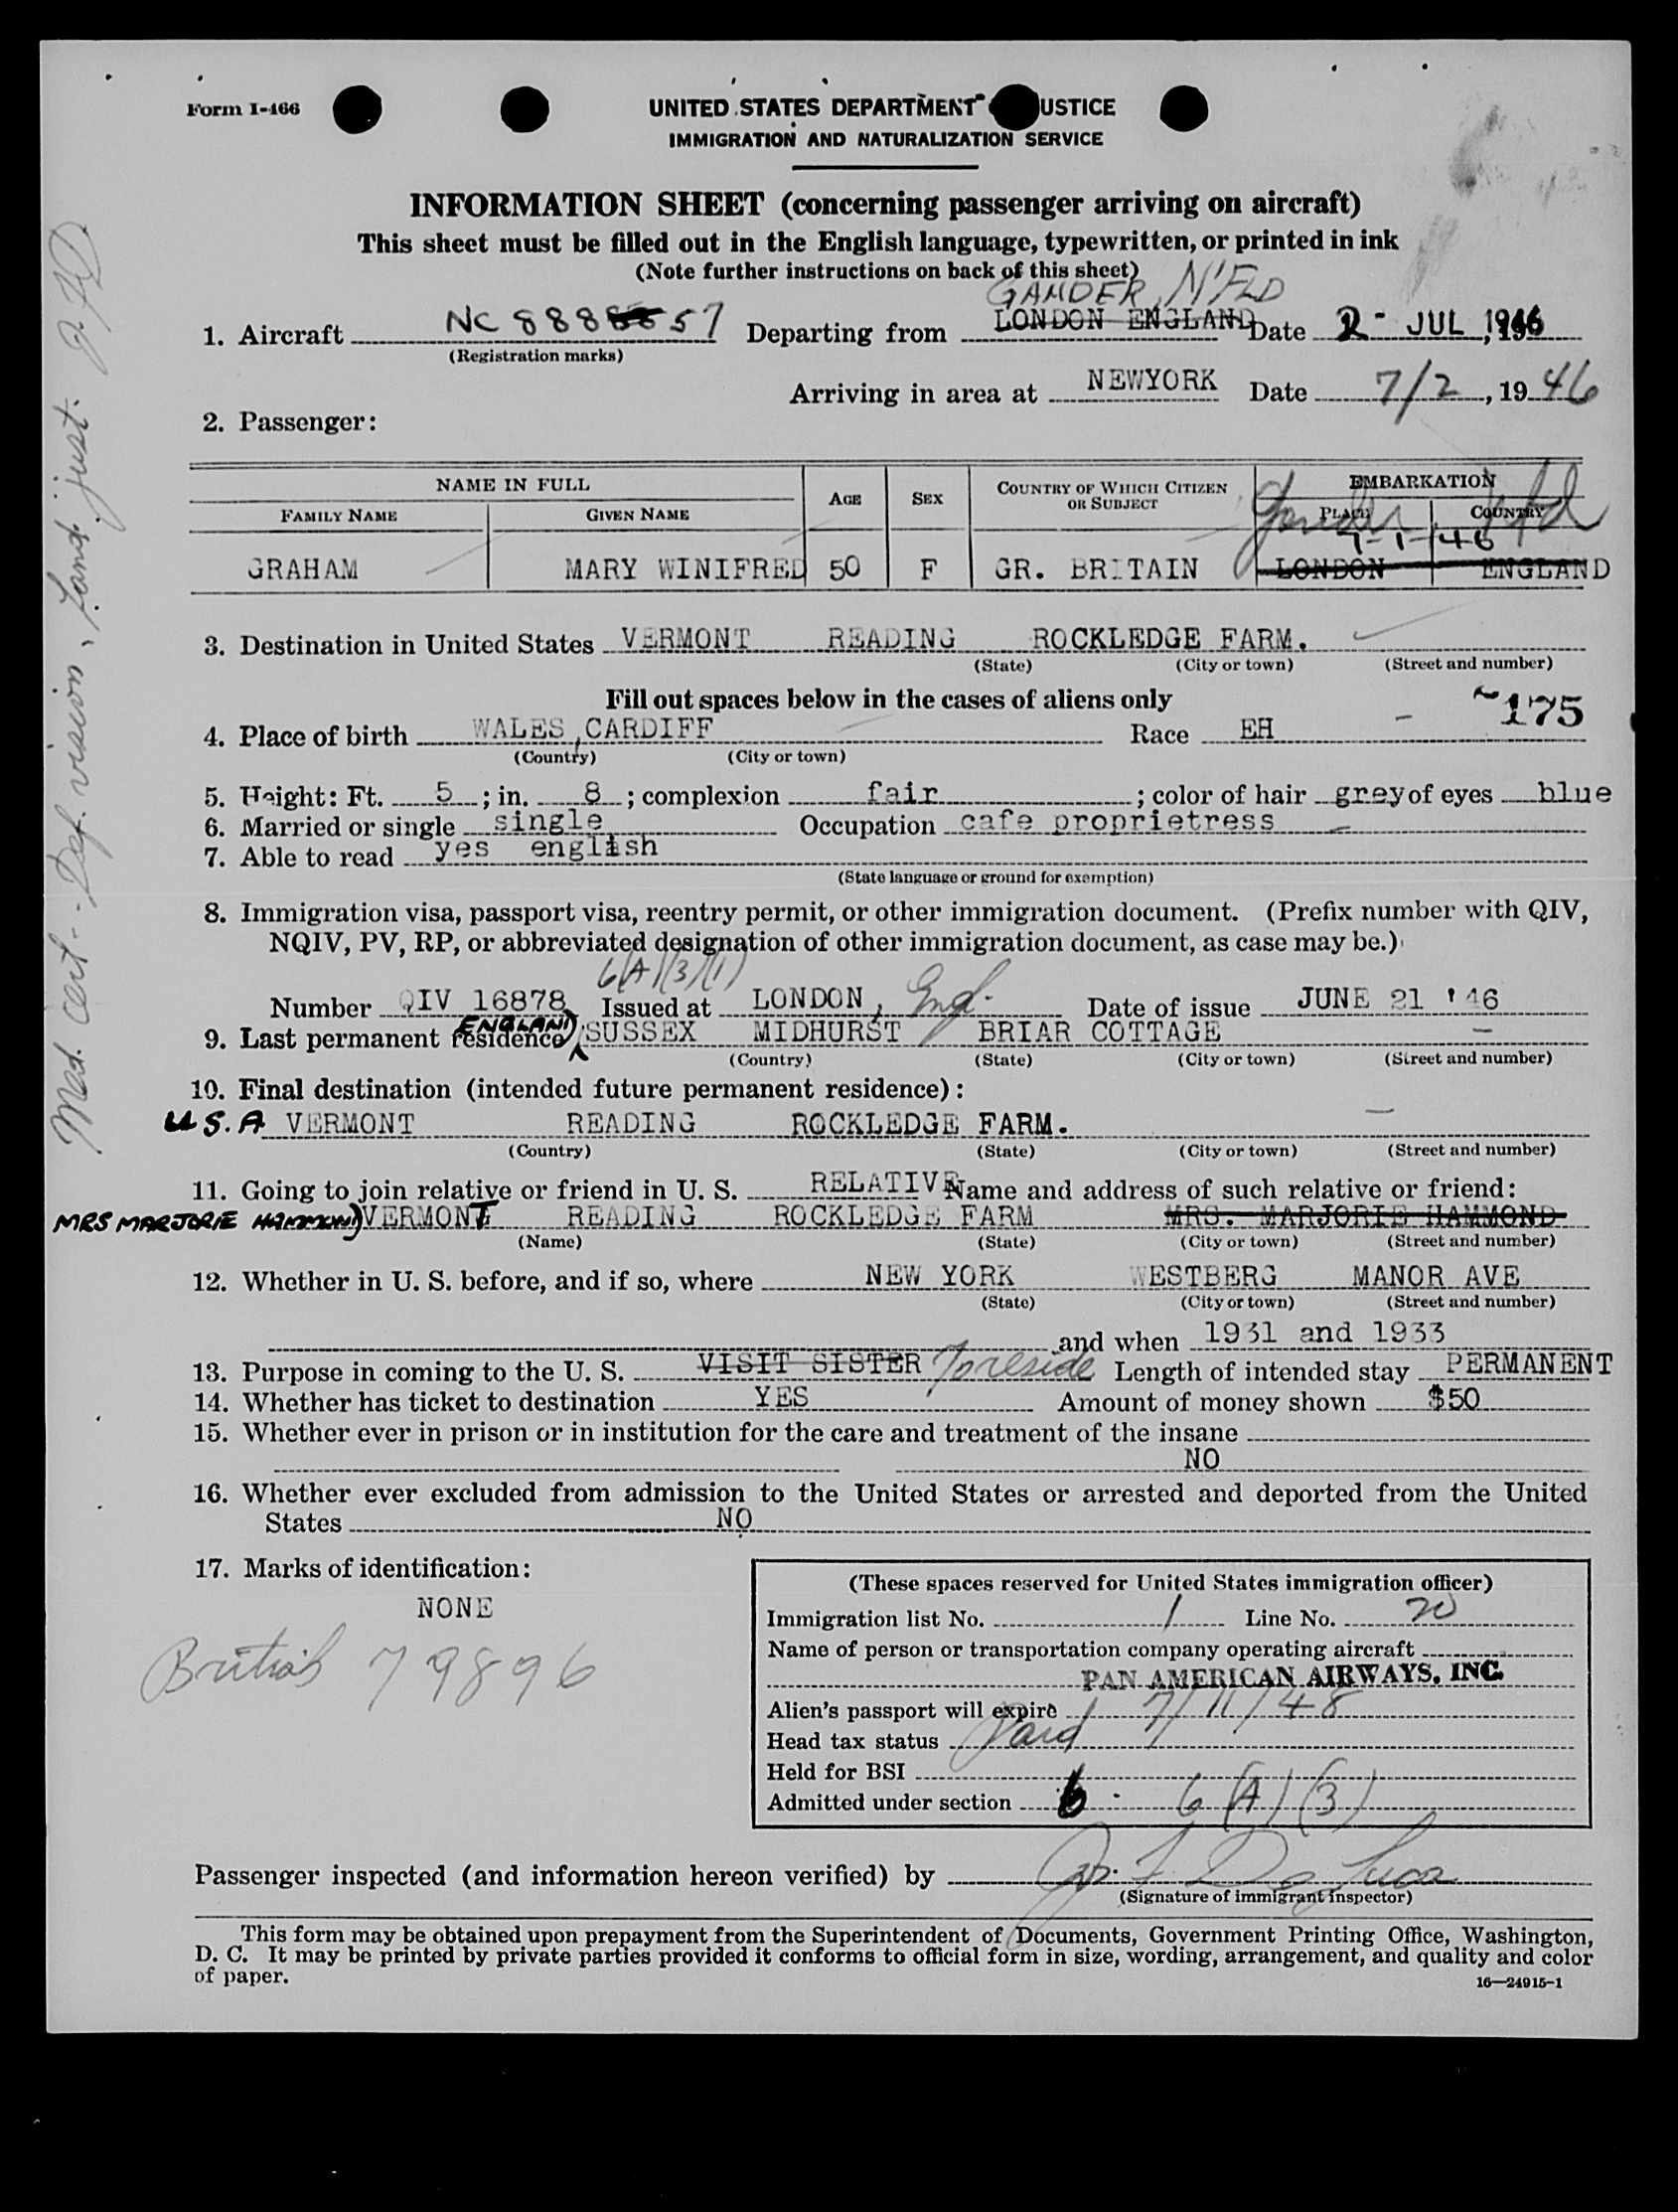 Form I-466
UNITED STATES DEPARTMENT USTICE
IMMIGRATION AND NATURALIZATION SERVICE
INFORMATION SHEET (concerning passenger arriving on aircraft)
This sheet must be filled out in the English language, typewritten, or printed in ink
(Note further instructions on back of this sheet)
GANDER, N'FLD
1. Aircraft NC 888 57 Departing from LONDON ENGLAND Date 2 - JUL 1946
(Registration marks)
Arriving in area at NEWYORK Date 7/2, 1946
2. Passenger:
NAME IN FULL AGE SEX COUNTRY OF WHICH CITIZEN OR SUBJECT EMBARKATION
FAMILY NAME GIVEN NAME PLACE COUNTRY
Gander Nfd
7-1-46
GRAHAM MARY WINIFRED 50 F GR. BRITAIN LONDON ENGLAND
3. Destination in United States VERMONT READING ROCKLEDGE FARM.
(State) (City or town) (Street and number)
Fill out spaces below in the cases of aliens only
175
4. Place of birth WALES, CARDIFF Race EH
(Country) (City or town)
5. Height: Ft. 5; in. 8; complexion fair; color of hair grey of eyes blue
6. Married or single single Occupation cafe proprietress
7. Able to read yes english
(State language or ground for exemption)
8. Immigration visa, passport visa, reentry permit, or other immigration document. (Prefix number with QIV,
NQIV, PV, RP, or abbreviated designation of other immigration document, as case may be.)
6(A)(3)(1)
Number QIV 16878 Issued at LONDON, Engl. Date of issue JUNE 21 '46
9. Last permanent residence ENGLAND SUSSEX MIDHURST BRIAR COTTAGE
(Country) (State) (City or town) (Street and number)
10. Final destination (intended future permanent residence):
U.S.A VERMONT READING ROCKLEDGE FARM.
(Country) (State) (City or town) (Street and number)
11. Going to join relative or friend in U. S. RELATIVE Name and address of such relative or friend:
MRS MARJORIE HAMMOND) VERMONT READING ROCKLEDGE FARM MRS. MARJORIE HAMMOND
(Name) (State) (City or town) (Street and number)
12. Whether in U. S. before, and if so, where NEW YORK WESTBERG MANOR AVE
(State) (City or town) (Street and number)
and when 1931 and 1933
13. Purpose in coming to the U. S. VISIT SISTER To reside Length of intended stay PERMANENT
14. Whether has ticket to destination YES Amount of money shown $50
15. Whether ever in prison or in institution for the care and treatment of the insane
NO
16. Whether ever excluded from admission to the United States or arrested and deported from the United
States NO
17. Marks of identification:
NONE
British 79896
(These spaces reserved for United States immigration officer)
Immigration list No. 1 Line No. 20
Name of person or transportation company operating aircraft
PAN AMERICAN AIRWAYS, INC.
Alien's passport will expire 7/11/48
Head tax status Paid
Held for BSI
Admitted under section 6 - 6(A)(3)
Passenger inspected (and information hereon verified) by
(Signature of immigrant inspector)
This form may be obtained upon prepayment from the Superintendent of Documents, Government Printing Office, Washington,
D. C. It may be printed by private parties provided it conforms to official form in size, wording, arrangement, and quality and color
of paper.
16—24915-1
Med. cert. - Def. vision, Land. just. J.F.D.